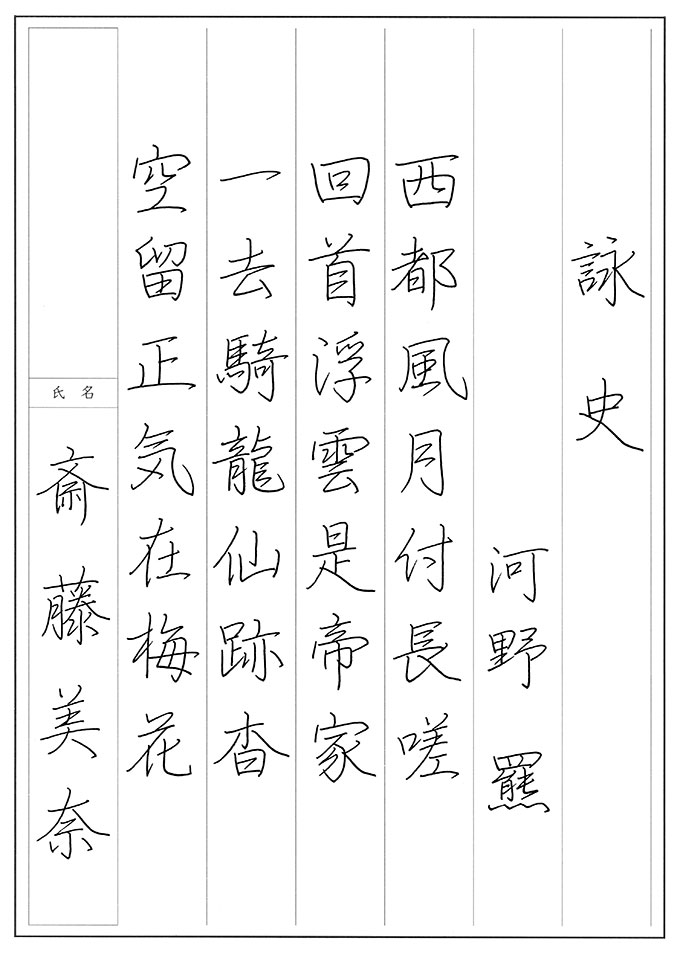 詠史
河野 羆
西都風月付長嗟
回首浮雲是帝家
一去騎龍仙跡杳
空留正気在梅花
氏名
斎藤美奈